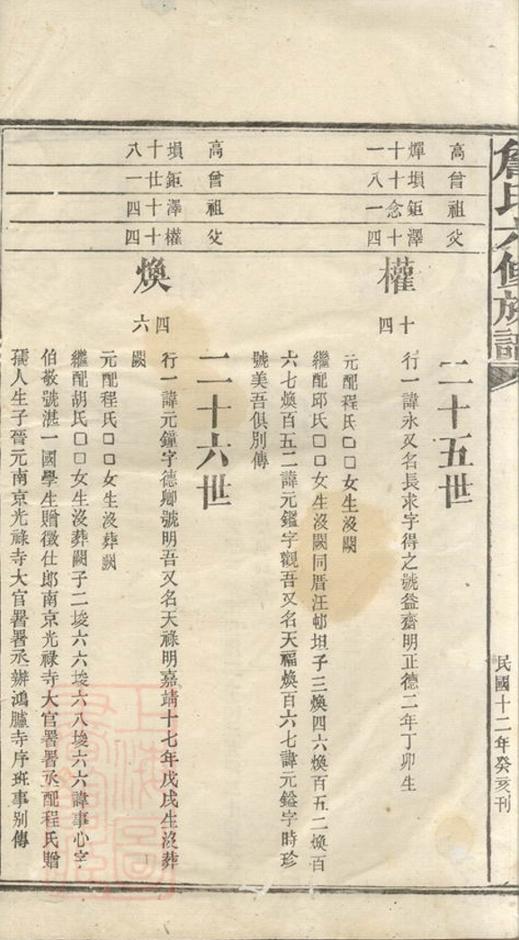 詹氏六修族譜
民國十二年癸亥刊
高 煇十一
曾 塤十八
祖 鉅念一
父 澤十四
權十四
二十五世
行一諱永又名長求字得之號益齋明正德二年丁卯生
元配程氏□□女生沒闕
繼配邱氏□□女生沒闕同厝汪邨坦子三煥四六煥百五二煥百
六七煥百五二諱元鑑字觀吾又名天福煥百六七諱元鎰字時珍
號美吾俱別傳
高 塤十八
曾 鉅廿一
祖 澤十四
父 權十四
煥四六
二十六世
行一諱元鐘字德卿號明吾又名天祿明嘉靖十七年戊戌生沒葬
闕
元配程氏□□女生沒葬闕
繼配胡氏□□女生沒葬闕子二埈六六埈六八埈六六諱事心字
伯敬號湛一國學生贈徵仕郎南京光祿寺大官署署丞配程氏贈
孺人生子晉元南京光祿寺大官署署丞辦鴻臚寺序班事別傳